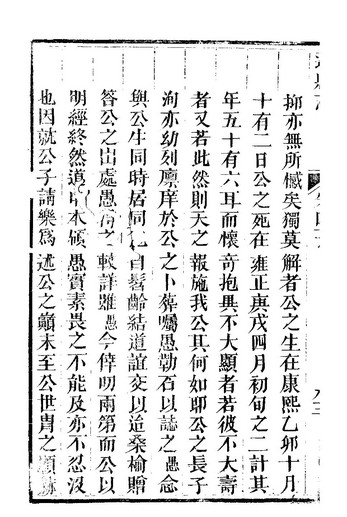 抑亦無所憾矣獨莫解者公之生在康熙乙卯十月
十有二日公之死在雍正庚戌四月初旬之二計其
年五十有六耳而懷奇抱異不大顯者若彼不大壽
者又若此然則天之報施我公其何如耶公之長子
洵亦幼列廪庠於公之卜葬囑愚勒石以誌之愚念
與公生同時居同 自髫齡結道誼交以迨桑榆贈
答公之出處愚 之較詳雖愚今倖叨兩第而公以
明經終然道 本領愚實素畏之不能及亦不忍沒
也因就公子請樂為述公之顛末至公世冑之